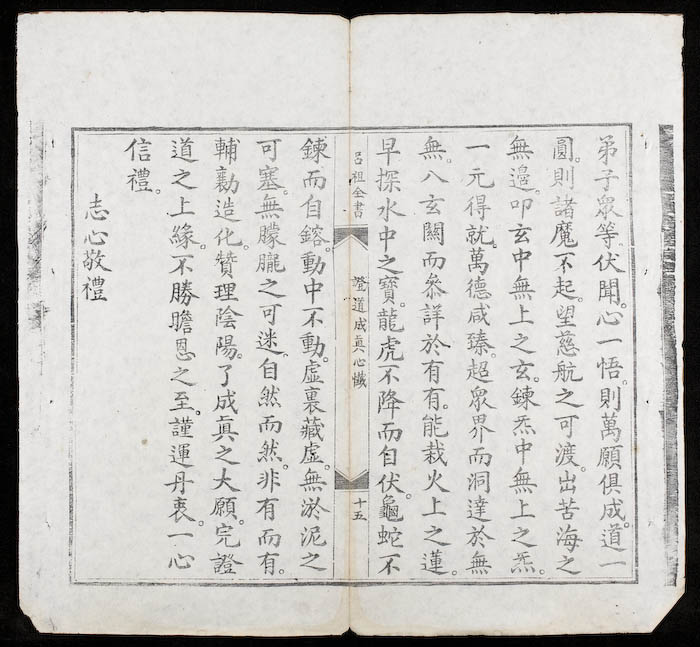 弟子眾等。伏聞。心一悟。則萬願俱成。道一
圓。則諸魔不起。望慈航之可渡。出苦海之
無邊。叩玄中無上之玄。鍊炁中無上之炁。
一元得就。萬德咸臻。超眾界而洞達於無
無。八玄關而叅詳於有有。能栽火上之蓮。
早探水中之寶。龍虎不降而自伏。龜蛇不
呂祖全書
證道成眞心懺
十五
鍊而自鎔。動中不動。虛裏藏虛。無淤泥之
可塞。無朦朧之可迷。自然而然。非有而有。
輔勷造化。贊理陰陽。了成眞之大願。完證
道之上緣。不勝瞻恩之至。謹運丹衷。一心
信禮。
志心敬禮